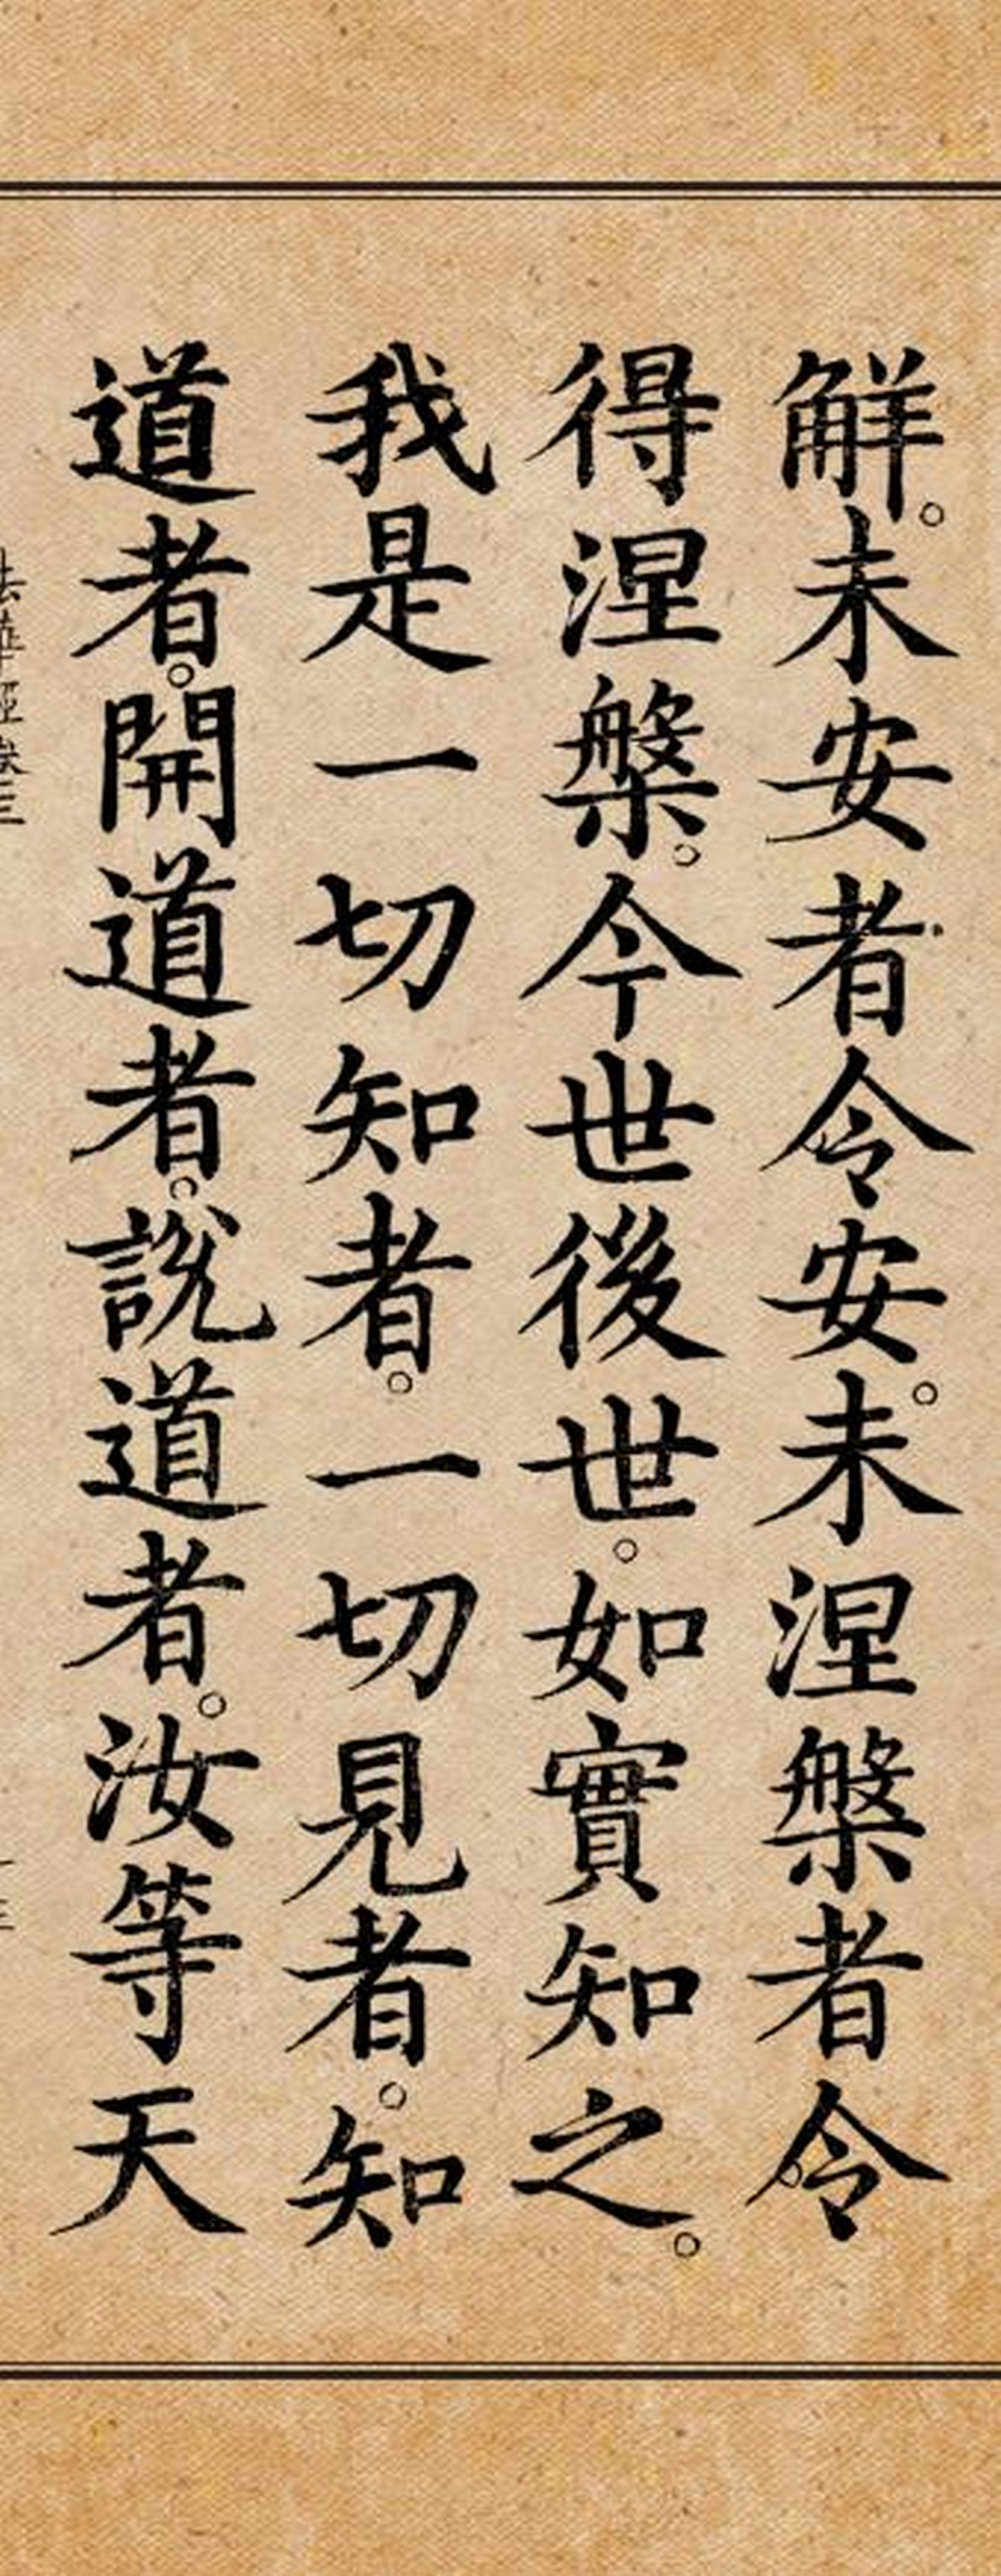 解。未安者令安。未涅槃者令
得涅槃。今世後世。如實知之。
我是一切知者。一切見者。知
道者。開道者。說道者。汝等天